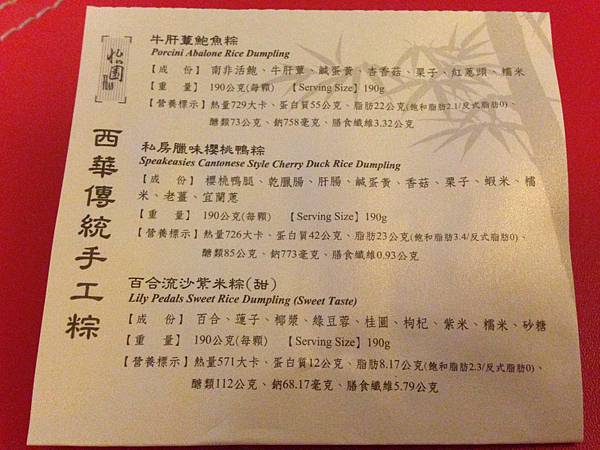 怡園
西華傳統手工粽
牛肝蕈鮑魚粽
Porcini Abalone Rice Dumpling
【成 份】 南非活鮑、牛肝蕈、鹹蛋黃、杏香菇、栗子、紅蔥頭、糯米
【重 量】 190公克(每顆) 【Serving Size】190g
【營養標示】熱量729大卡、蛋白質55公克、脂肪22公克(飽和脂肪2.1/反式脂肪0)、
醣類73公克、鈉758毫克、膳食纖維3.32公克
私房臘味櫻桃鴨粽
Speakeasies Cantonese Style Cherry Duck Rice Dumpling
【成 份】 櫻桃鴨腿、乾臘腸、肝腸、鹹蛋黃、香菇、栗子、蝦米、糯
米、老薑、宜蘭蔥
【重 量】 190公克(每顆) 【Serving Size】190g
【營養標示】熱量726大卡、蛋白質42公克、脂肪23公克(飽和脂肪3.4/反式脂肪0)、
醣類85公克、鈉773毫克、膳食纖維0.93公克
百合流沙紫米粽(甜)
Lily Pedals Sweet Rice Dumpling (Sweet Taste)
【成 份】 百合、蓮子、椰漿、綠豆蓉、桂圓、枸杞、紫米、糯米、砂糖
【重 量】 190公克(每顆) 【Serving Size】190g
【營養標示】熱量571大卡、蛋白質12公克、脂肪8.17公克(飽和脂肪2.3/反式脂肪0)、
醣類112公克、鈉68.17毫克、膳食纖維5.79公克